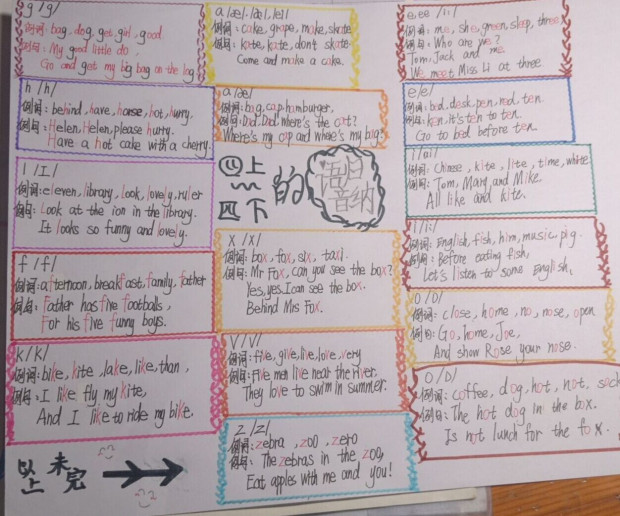 g /g/
例词: bag, dog, get, girl, good
例句: My good little do
Go and get my big bag on the log
h /h/
例词: behind, have, horse, hot, hurry.
例句: Helen, Helen, please hurry.
Have a hot cake with a cherry.
l /l/
例词: eleven, library, Look, lovely, ruler
例句: Look at the ion in the library.
It looks so funny and lovely.
f /f/
例词: afternoon, breakfast, family, father
例句: Father has five footballs,
For his five funny boys.
k /k/
例词: bike, kite, lake, like, than,
例句: I like fly my kite,
And I like to ride my bike.
以上 未完
a
例词: cake, grape, make, skate
例句: Kate, kate, don't skate
Come and make a cake.
a /æ/
例词: bag, cap, hamburger.
例句: Dad, Dad, where's the cat?
Where's my cap and where's my big?
四上
四下
的
语音归纳
x /x/
例词: box, fox, six, taxi.
例句: Mr Fox, can you see the box?
Yes, yes I can see the box.
Behind Mrs Fox.
V /V/
例词: five, give, live, love, very
例句: Five men live near the river.
They love to swim in summer.
z /z/
例词: zebra, zoo, zero
例句: The zebras in the zoo,
Eat apples with me and you!
e, ee /i:/
例词: me, she, green, sleep, three
例句: Who are we?
Tom, Jack and me.
We meet Miss Li at three
e /e/
例词: bed, desk, pen, red, ten.
例句: Ken, it's ten to ten.
Go to bed before ten.
i /ai/
例词: Chinese, kite, like, time, white
例句: Tom, Mary and Mike
All like and kite.
i /i:/
例词: English, fish, him, music, pig.
例句: Before eating fish,
Let's listen to some English.
例词: close, home, no, nose, open
例句: Go, home, Joe,
And show Rose your nose.
例词: coffee, dog, hot, not, sock
例句: The hot dog in the box.
Is not lunch for the fox.